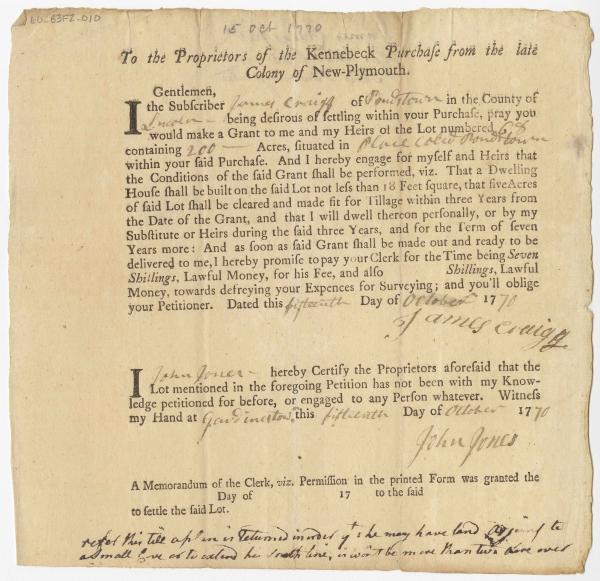 60-63F2-010
15 Oct 1770
To the Proprietors of the Kennebeck Purchase from the late
Colony of New-Plymouth.
Gentlemen,
I the Subscriber James Craigg of Pondstown in the County of
Lincoln – being desirous of settling within your Purchase, pray you
would make a Grant to me and my Heirs of the Lot numbered
containing 200 — Acres, situated in Place Called Pondstown
within your said Purchase. And I hereby engage for myself and Heirs that
the Conditions of the said Grant shall be performed, viz. That a Dwelling
House shall be built on the said Lot not less than 18 Feet square, that five Acres
of said Lot shall be cleared and made fit for Tillage within three Years from
the Date of the Grant, and that I will dwell thereon personally, or by my
Substitute or Heirs during the said three Years, and for the Term of seven
Years more: And as soon as said Grant shall be made out and ready to be
delivered to me, I hereby promise to pay your Clerk for the Time being Seven
Shillings, Lawful Money, for his Fee, and also Shillings, Lawful
Money, towards defreying your Expences for Surveying; and you'll oblige
your Petitioner. Dated this fifteenth Day of October 1770
James Craigg
I John Jones – hereby Certify the Proprietors aforesaid that the
Lot mentioned in the foregoing Petition has not been with my Know-
ledge petitioned for before, or engaged to any Person whatever. Witness
my Hand at Gardinerstown this fifteenth Day of October 1770
John Jones
A Memorandum of the Clerk, viz. Permission in the printed Form was granted the
Day of 17 to the said
to settle the said Lot.
refer this till a plan is returned in order yt he may have land to
a Small or to extend his South line, it wont be more than two over